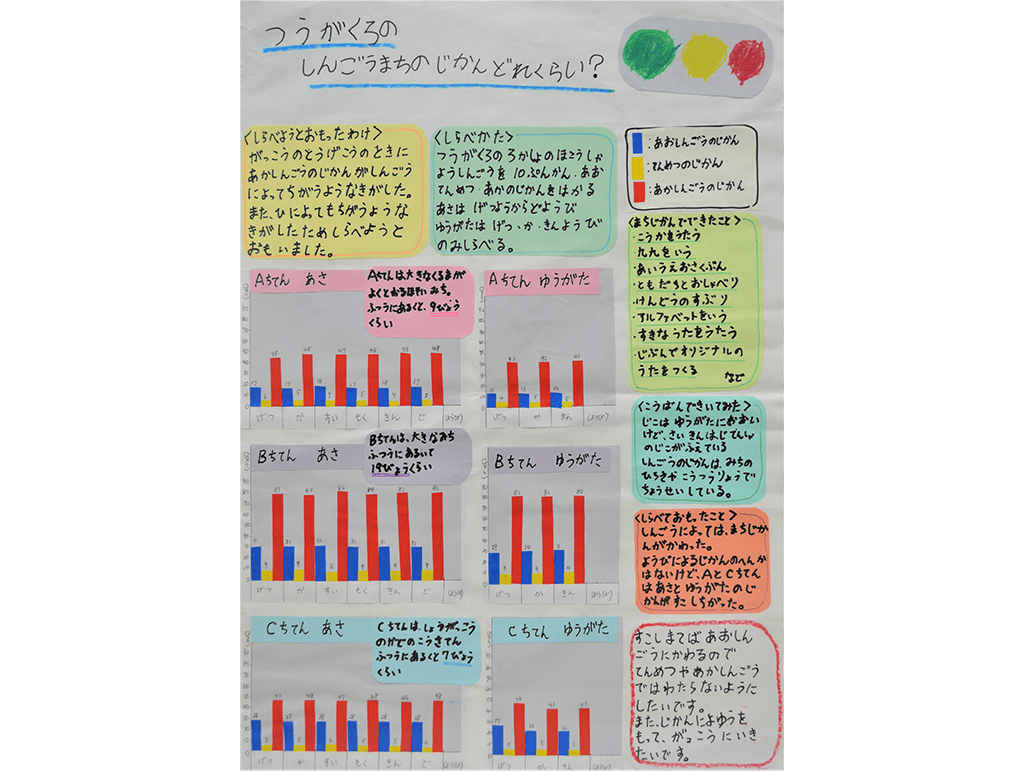 つうがくろの
しんごうまちのじかんどれくらい?
<しらべようとおもったわけ>
がっこうのとうげこうのときに
あかしんごうのじかんがしんごう
によってちがうようなきがした。
また、ひによってもちがうような
きがしたためしらべようと
おもいました。
<しらべかた>
つうがくろの3かしょのほこうしゃ
ようしんごうを10ぷんかん、あお
てんめつ・あかのじかんをはかる
あさは げつようからどようび
ゆうがたは げつ・か・きんようび
のみしらべる。
:あおしんごうのじかん
:てんめつのじかん
:あかしんごうのじかん
<まちじかんでできたこと>
・こうかをうたう
九九をいう
あいうえおさくぶん
・ともだちとおしゃべり
けんどうのすぶり
・アルファベットをいう
すきなうたをうたう
・じぶんでオリジナルの
うたをつくる
など
Aちてん あさ
Aちてんは大きなくるまが
よくとおるほそいみち。
ふつうにあるくと、9びょう
くらい
げつ か すい もく きん ど (ようび)
Aちてん ゆうがた
げつ か きん (ようび)
Bちてん あさ
Bちてんは、大きなみち
ふつうにあるいて
19びょうくらい
げつ か すい もく きん ど (ようび)
Bちてん ゆうがた
げつ か きん (ようび)
Cちてん あさ
Cちてんは、しょうがっこう
のかどのこうさてん
ふつうにあるくと7びょう
くらい
げつ か すい もく きん ど (ようび)
Cちてん ゆうがた
げつ か きん (ようび)
<こうばんできいてみた>
じこは ゆうがたにおおい
けど、さいきんは、じてんしゃ
のじこがふえている
しんごうのじかんは、みちの
ひろさやこうつうりょうで
ちょうせいしている。
<しらべておもったこと>
しんごうによっては、まちじか
んがかわった。
ようびによるじかんのへんか
はないけど、AとCちてん
はあさとゆうがたのじ
かんがすこしちがった。
すこしまてばあおしん
ごうにかわるので
てんめつやあかしんごう
ではわたらないように
したいです。
また、じかんによゆうを
もって、がっこうにいき
たいです。